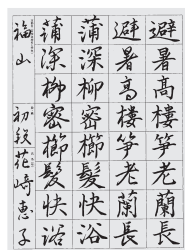 避暑高樓笋老蘭長
避暑高樓笋老蘭長
蒲深柳密櫛髮快浴
蒲深柳密櫛髮快浴
福山 初段 花崎恵子